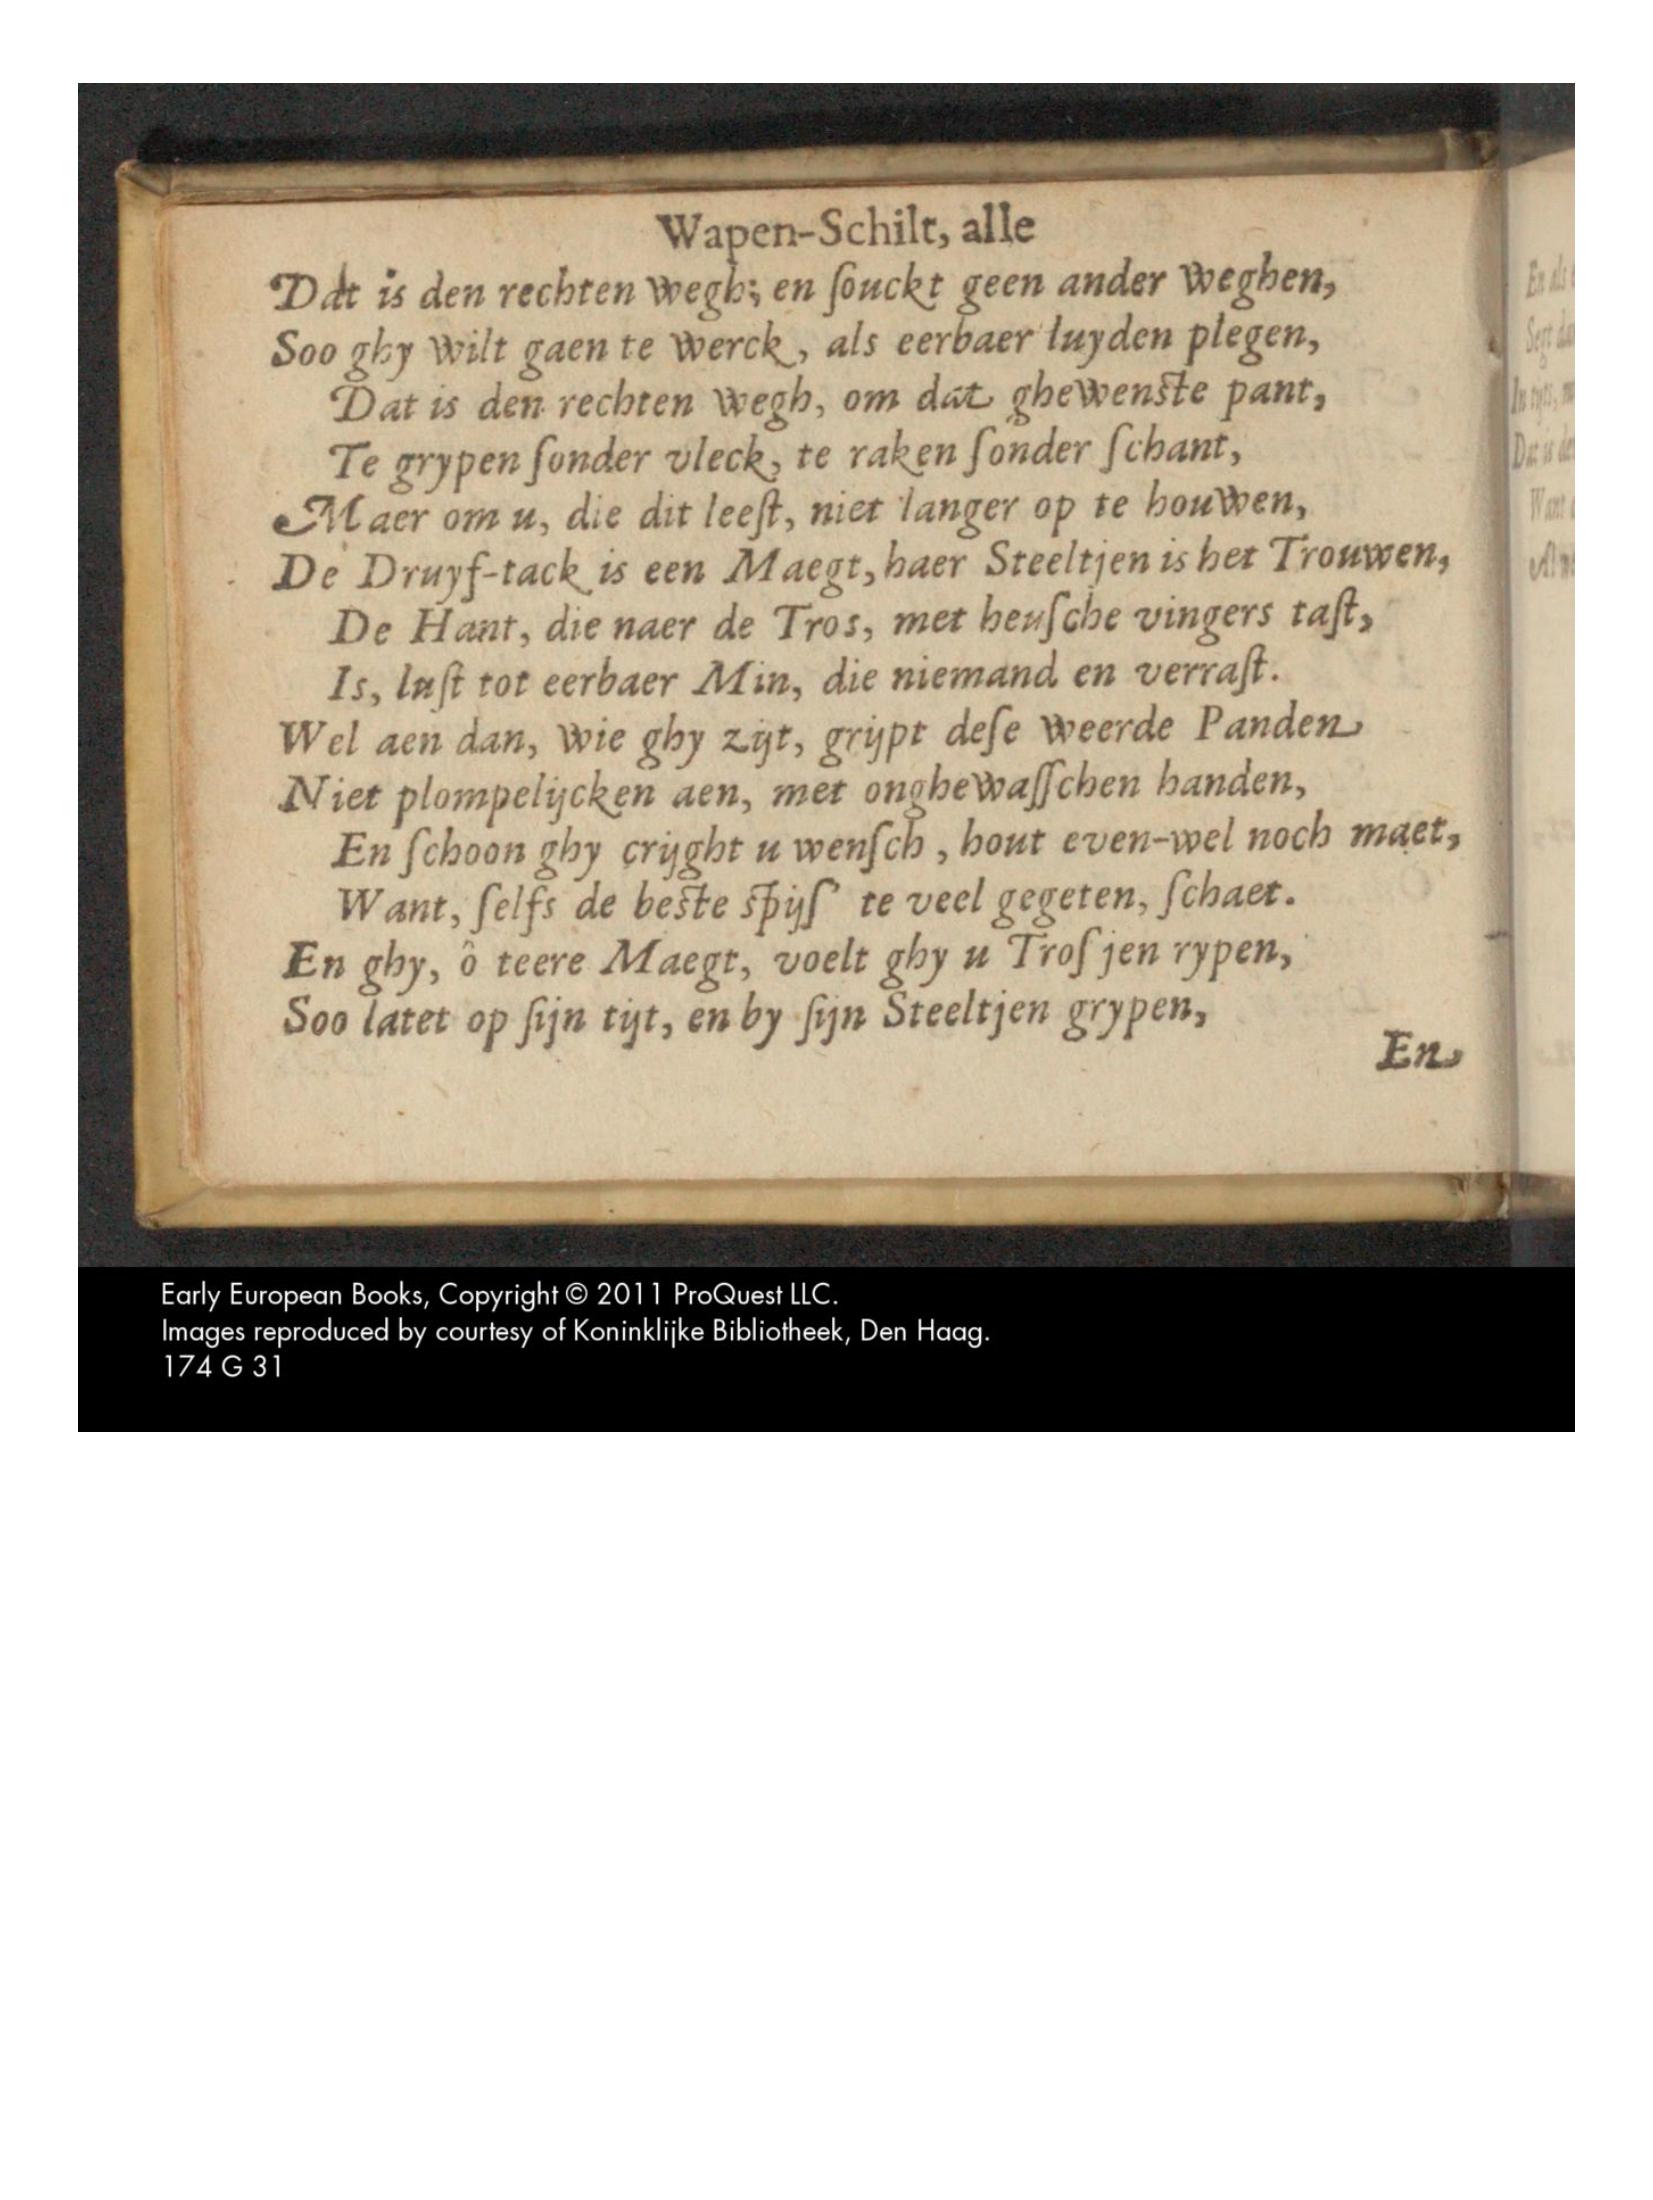 Wapen-Schilt, alle
Dat is den rechten wegh; en ſouckt geen ander weghen,
Soo ghy wilt gaen te werck, als eerbaer luyden plegen,
Dat is den rechten wegh, om dat ghewenste pant,
Te grypen ſonder vleck, te raken ſonder ſchant,
Maer om u, die dit leeſt, niet langer op te houwen,
De Druyf-tack is een Maegt, haer Steeltjen is het Trouwen,
De Hant, die naer de Tros, met heuſche vingers taſt,
Is, luſt tot eerbaer Min, die niemand en verraſt.
Wel aen dan, wie ghy zijt, grijpt deſe weerde Panden
Niet plompelijcken aen, met onghewaſſchen handen,
En ſchoon ghy crijght u wenſch, hout even-wel noch maet,
Want, ſelfs de beste spijſ' te veel gegeten, ſchaet.
En ghy, ô teere Maegt, voelt ghy u Troſjen rypen,
Soo latet op ſijn tijt, en by ſijn Steeltjen grypen,
En
Early European Books, Copyright © 2011 ProQuest LLC.
Images reproduced by courtesy of Koninklijke Bibliotheek, Den Haag.
174 G 31